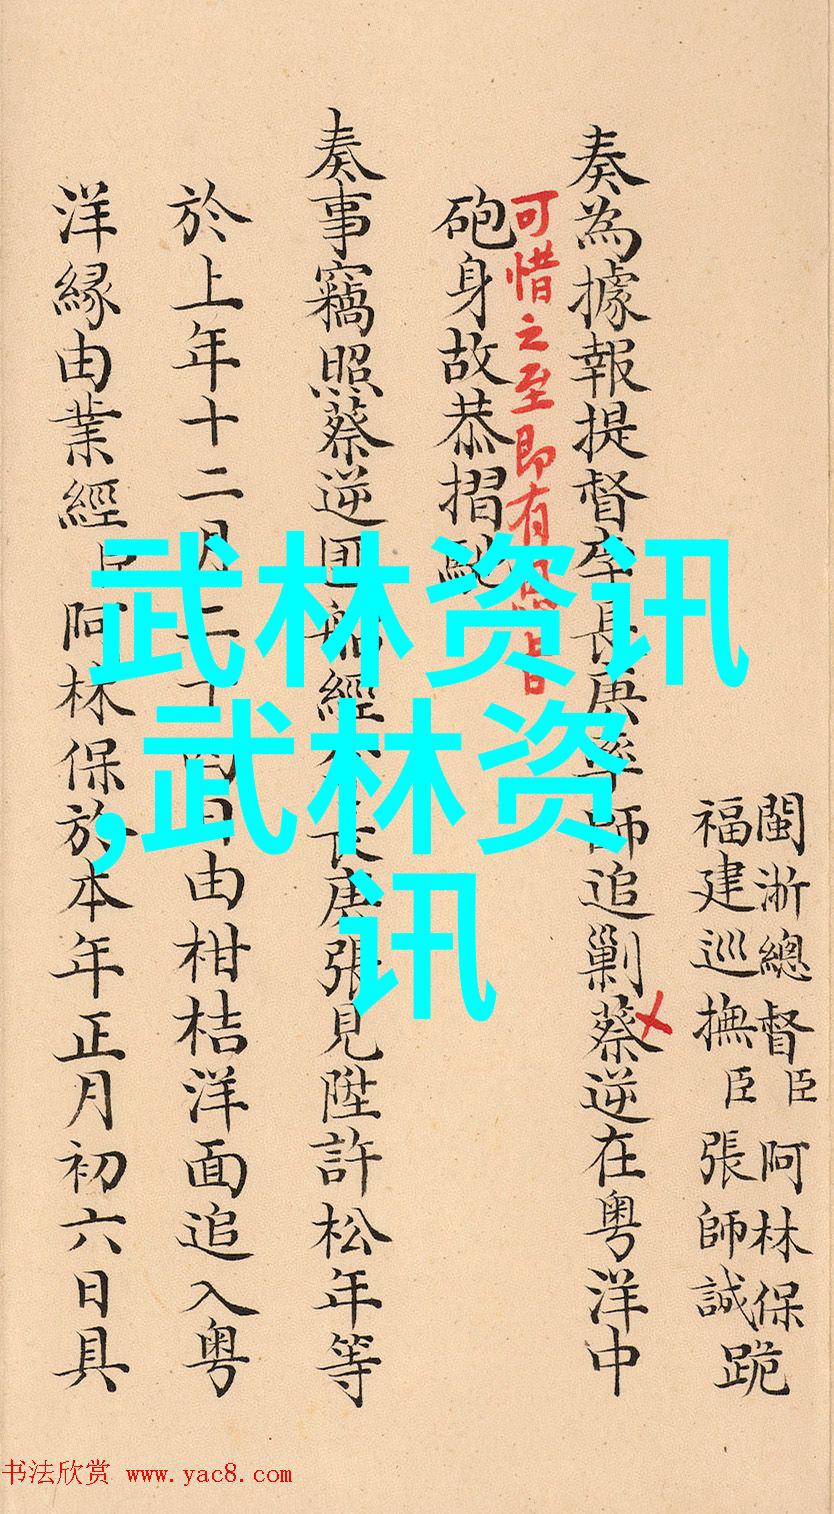 閩浙總督臣阿林保跪
福建巡撫臣張師誠
奏為據報提督李長庚率師追剿蔡逆在粤洋中
可惜之至即有旨
砲身故恭摺馳
奏事竊照蔡逆匪船經長庚張見陞許松年等
於上年十二月二十四日由柑桔洋面追入粤
洋緣由業經臣阿林保於本年正月初六日具
武林资讯
,武林资
讯
书法欣赏 www.yac8.com